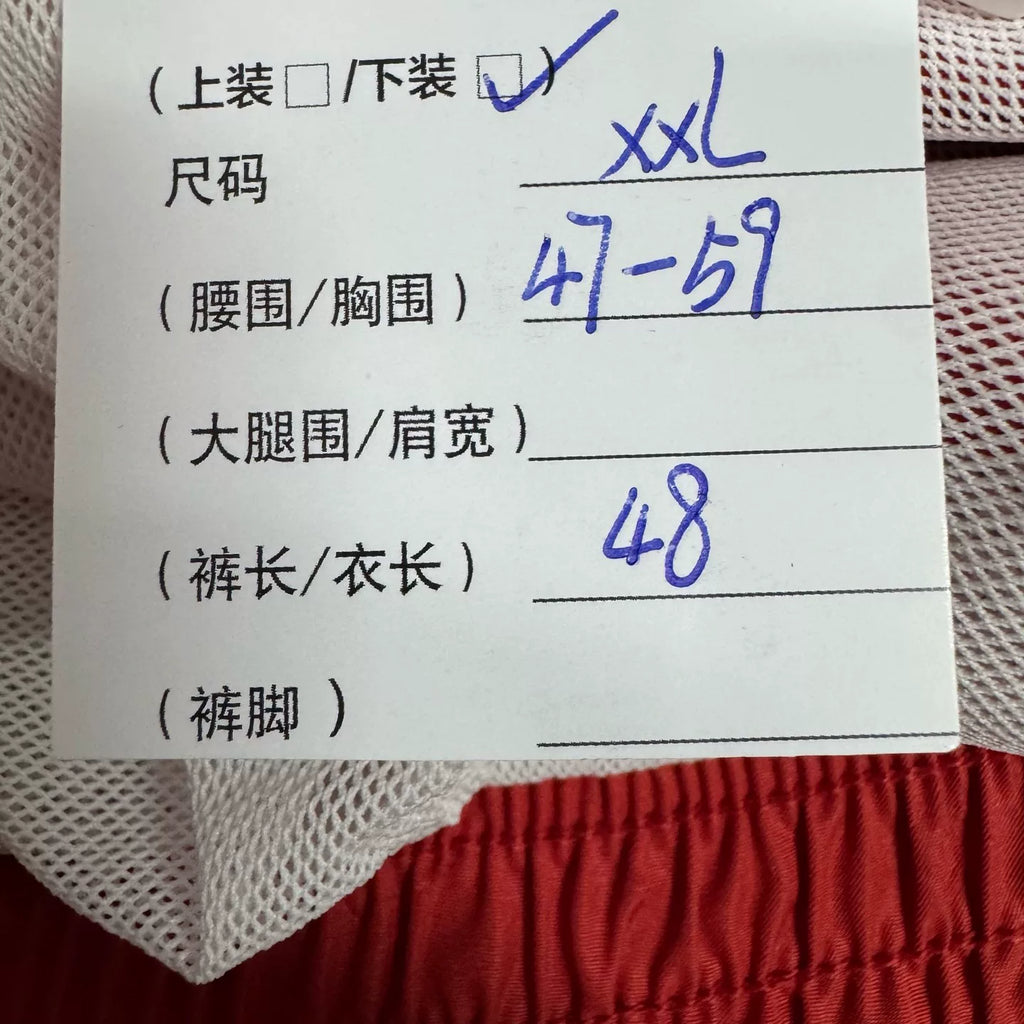 (上装□/下装☑)
尺码 XXL
(腰围/胸围) 47-59
(大腿围/肩宽)
(裤长/衣长) 48
(裤脚)